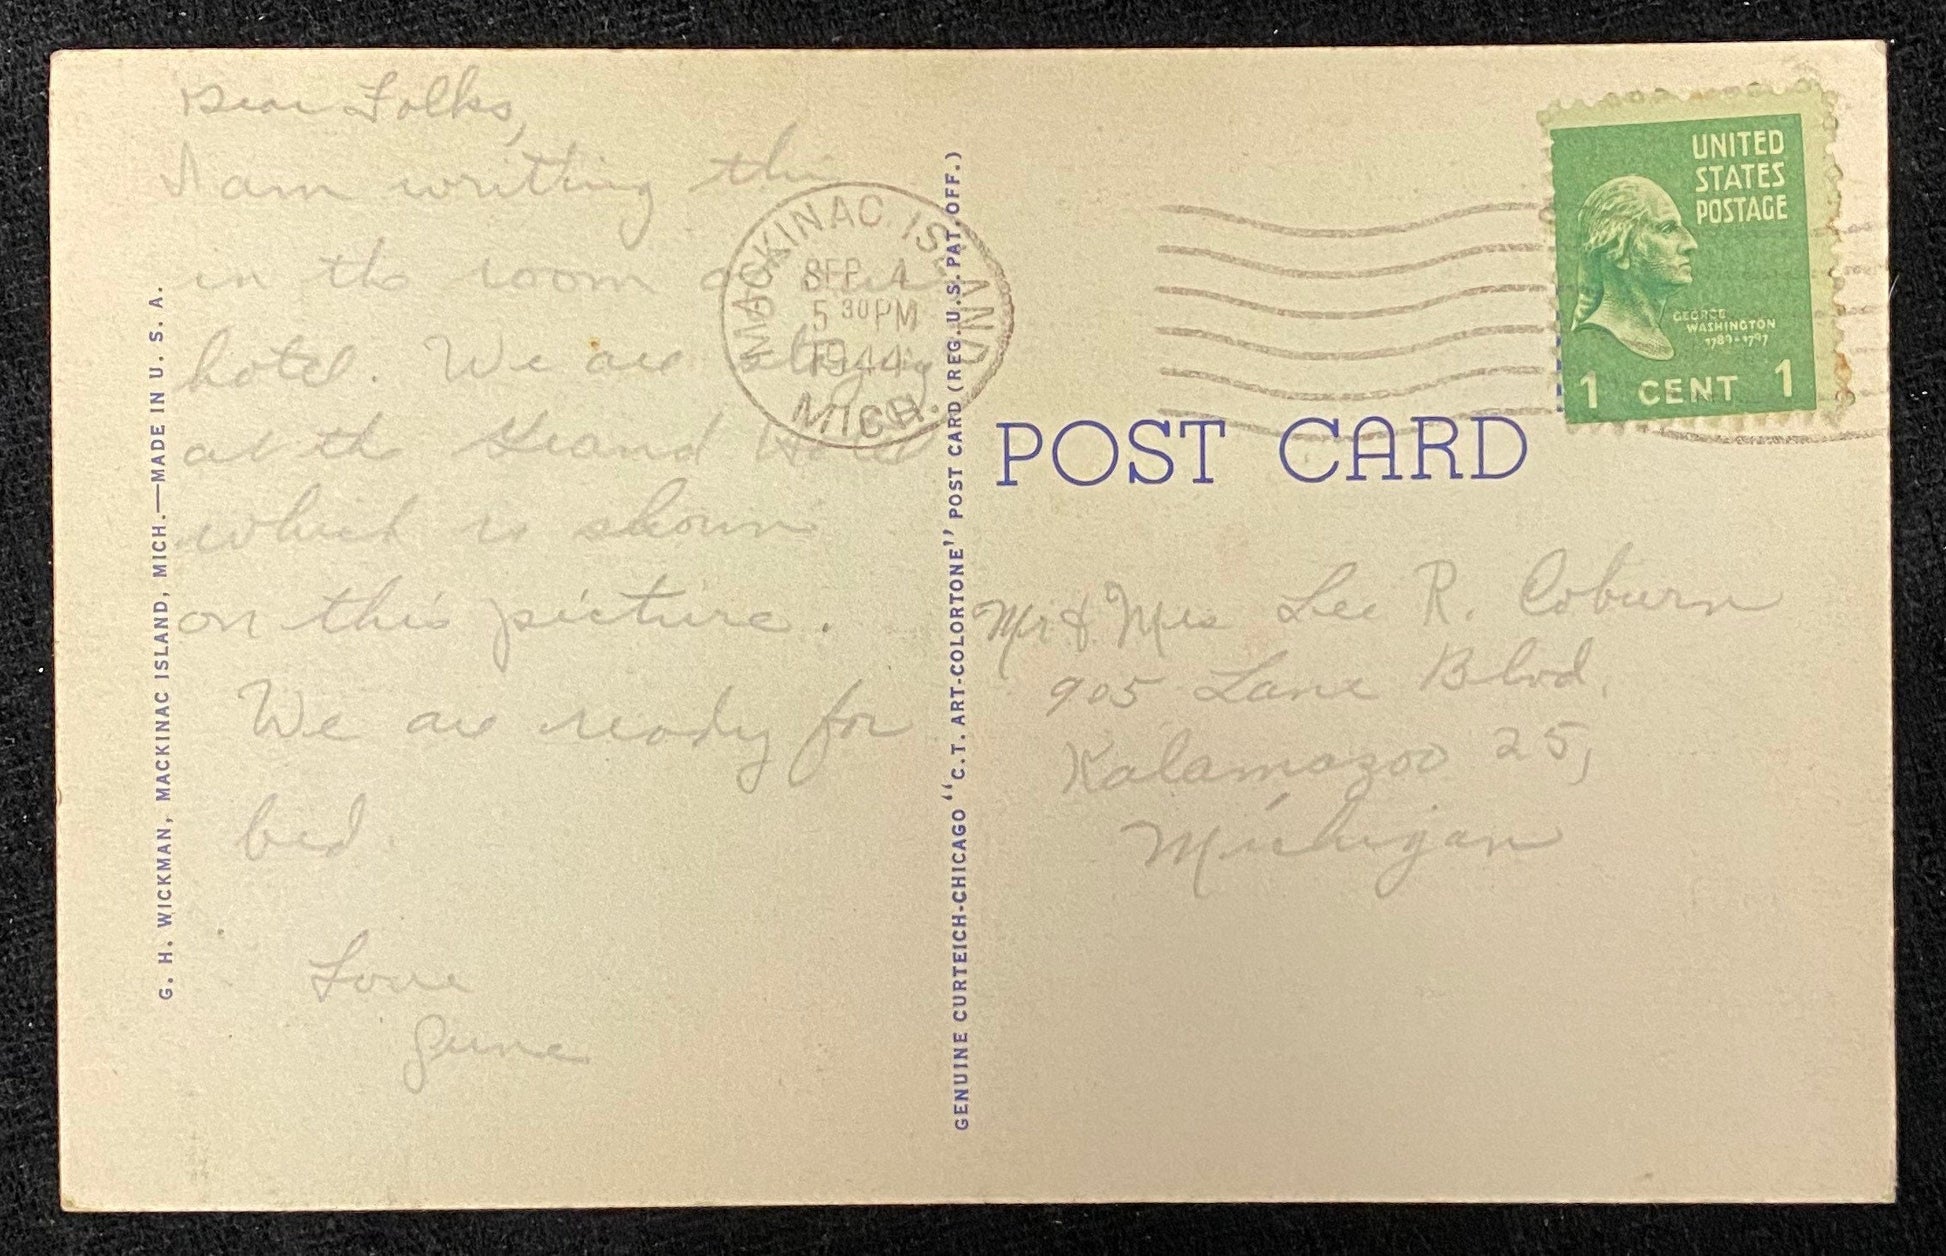 Dear Folks,
I am writing this
in the room of our
hotel. We are staying
at the Grand Hotel
which is shown
on this picture.
We are ready for
bed.
Love
June
G. H. WICKMAN, MACKINAC ISLAND, MICH.—MADE IN U. S. A.
MACKINAC ISLAND
SEP 4
5 30 PM
1944
MICH.
GENUINE CURTEICH-CHICAGO "C. T. ART-COLORTONE" POST CARD (REG. U. S. PAT. OFF.)
UNITED
STATES
POSTAGE
GEORGE
WASHINGTON
1789-1797
1 CENT 1
POST CARD
Mr & Mrs Lee R. Coburn
905 Lane Blvd.
Kalamazoo 25,
Michigan